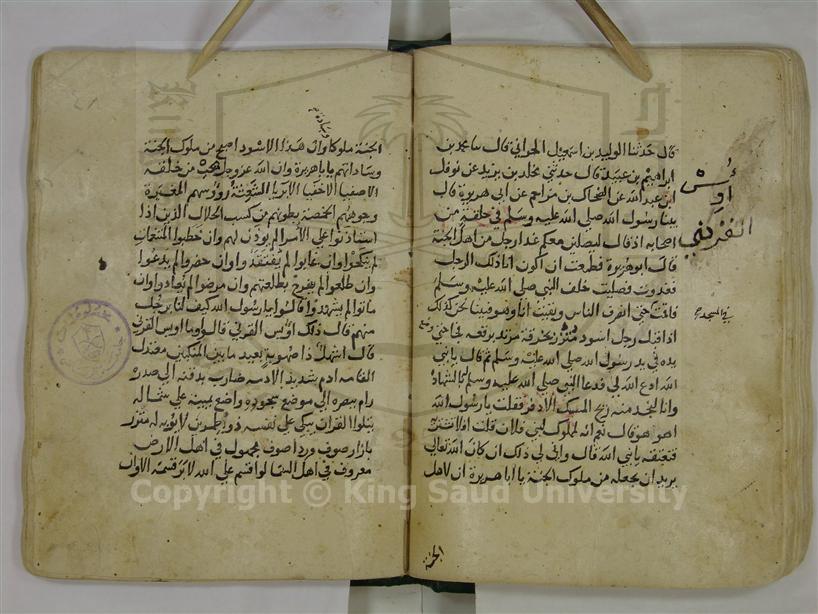 قال حدثنا الوليد بن اسمعيل الحراني قال ثنا محمد بن
ابراهيم بن عبيد قال حدثني مخلد بن يزيد عن نوفل
ابن عبد الله عن الضحاك بن مزاحم عن ابي هريرة قال
بينا رسول الله صلى الله عليه وسلم في حلقة من
اصحابه اذ قال ليصلين معكم غدا رجل من اهل الجنة
قال ابو هريرة فطمعت ان اكون انا ذلك الرجل
فغدوت فصليت خلف النبي صلى الله عليه وسلم
فاقمت حتى انصرف الناس وبقيت انا وهو فبينا نحن كذلك
اذ اقبل رجل اسود متزر بخرقة مرتد برقعه فجا حتى وضع
يده في يد رسول الله صلى الله عليه وسلم ثم قال يا نبي
الله ادع الله لي فدعا النبي صلى الله عليه وسلم بالشهادة
وانا لنجد منه ريح المسك الاذفر فقلت يا رسول الله
اهو هو قال نعم انه لمملوك لبني فلان قلت افلا تشتريه
فتعتقه يا نبي الله قال واني لي ذلك ان كان الله تعالى
يريد ان يجعله من ملوك الجنة يا ابا هريرة ان لاهل
الجنة
اويس
القرني
في المسجد
الجنة ملوكا وان هذا الاسود اصبح من ملوك الجنة
وساداتهم يا ابا هريرة وان الله عز وجل يحب من خلقه
الاصفيا الاخفيا الابريا الشعثة رؤوسهم المغبرة
وجوههم الخمصة بطونهم من كسب الحلال الذين اذا
استاذنوا على الامرا لم يوذن لهم وان خطبوا المتنعمات
لم ينكحوا وان غابوا لم يفتقدوا وان حضروا لم يدعوا
وان طلعوا لم يفرح بطلعتهم وان مرضوا لم يعادوا وان
ماتوا لم يشهدوا قالوا يا رسول الله كيف لنا برجل
منهم قال ذلك اويس القرني قالوا وما اويس القرني
قال اشهل ذا صهوبة بعيد ما بين المنكبين معتدل
القامه ادم شديد الادمه ضارب بذقنه الى صدره
رام ببصره الى موضع سجوده واضع يمينه على شماله
يتلوا القران يبكي على نفسه ذو طمرين لا يوبه له متزر
بازار صوف وردا صوف مجهول في اهل الارض
معروف في اهل السما لو اقسم على الله لابر قسمه الا وان
Copyright © King Saud University